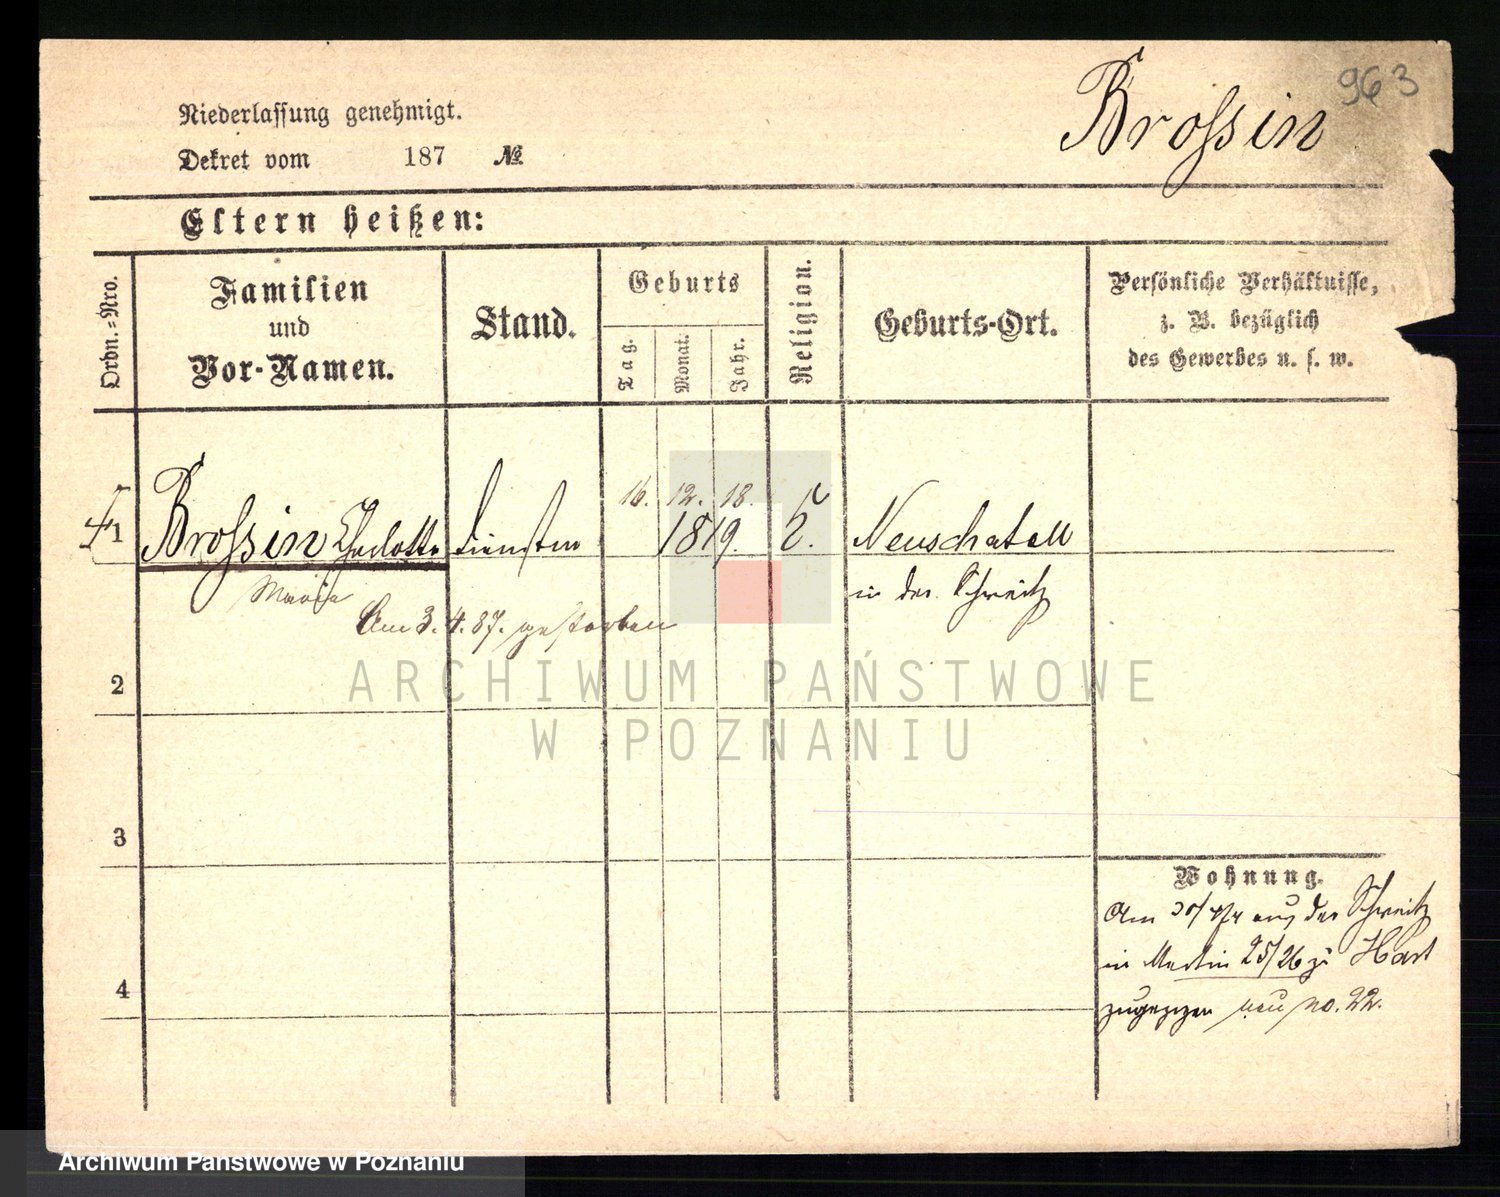 963
Brossin
Niederlassung genehmigt.
Dekret vom 187 №
Eltern heißen:
Ordn.=Nro.
Familien
und
Vor-Namen.
Stand.
Geburts
Tag.
Monat.
Jahr.
Religion.
Geburts-Ort.
Persönliche Verhältnisse,
z. B. bezüglich
des Gewerbes u. s. w.
16. 12. 18.
1 Brossin Charlotte 1819. Neuschatell
Marie in der Schweitz
Am 3. 4. 87. gestorben
2
3
4
Wohnung.
Am aus der Schweitz
in Martin 25/26 zu Hart
zugezogen neu no. 22.
ARCHIWUM PAŃSTWOWE
W POZNANIU
Archiwum Państwowe w Poznaniu